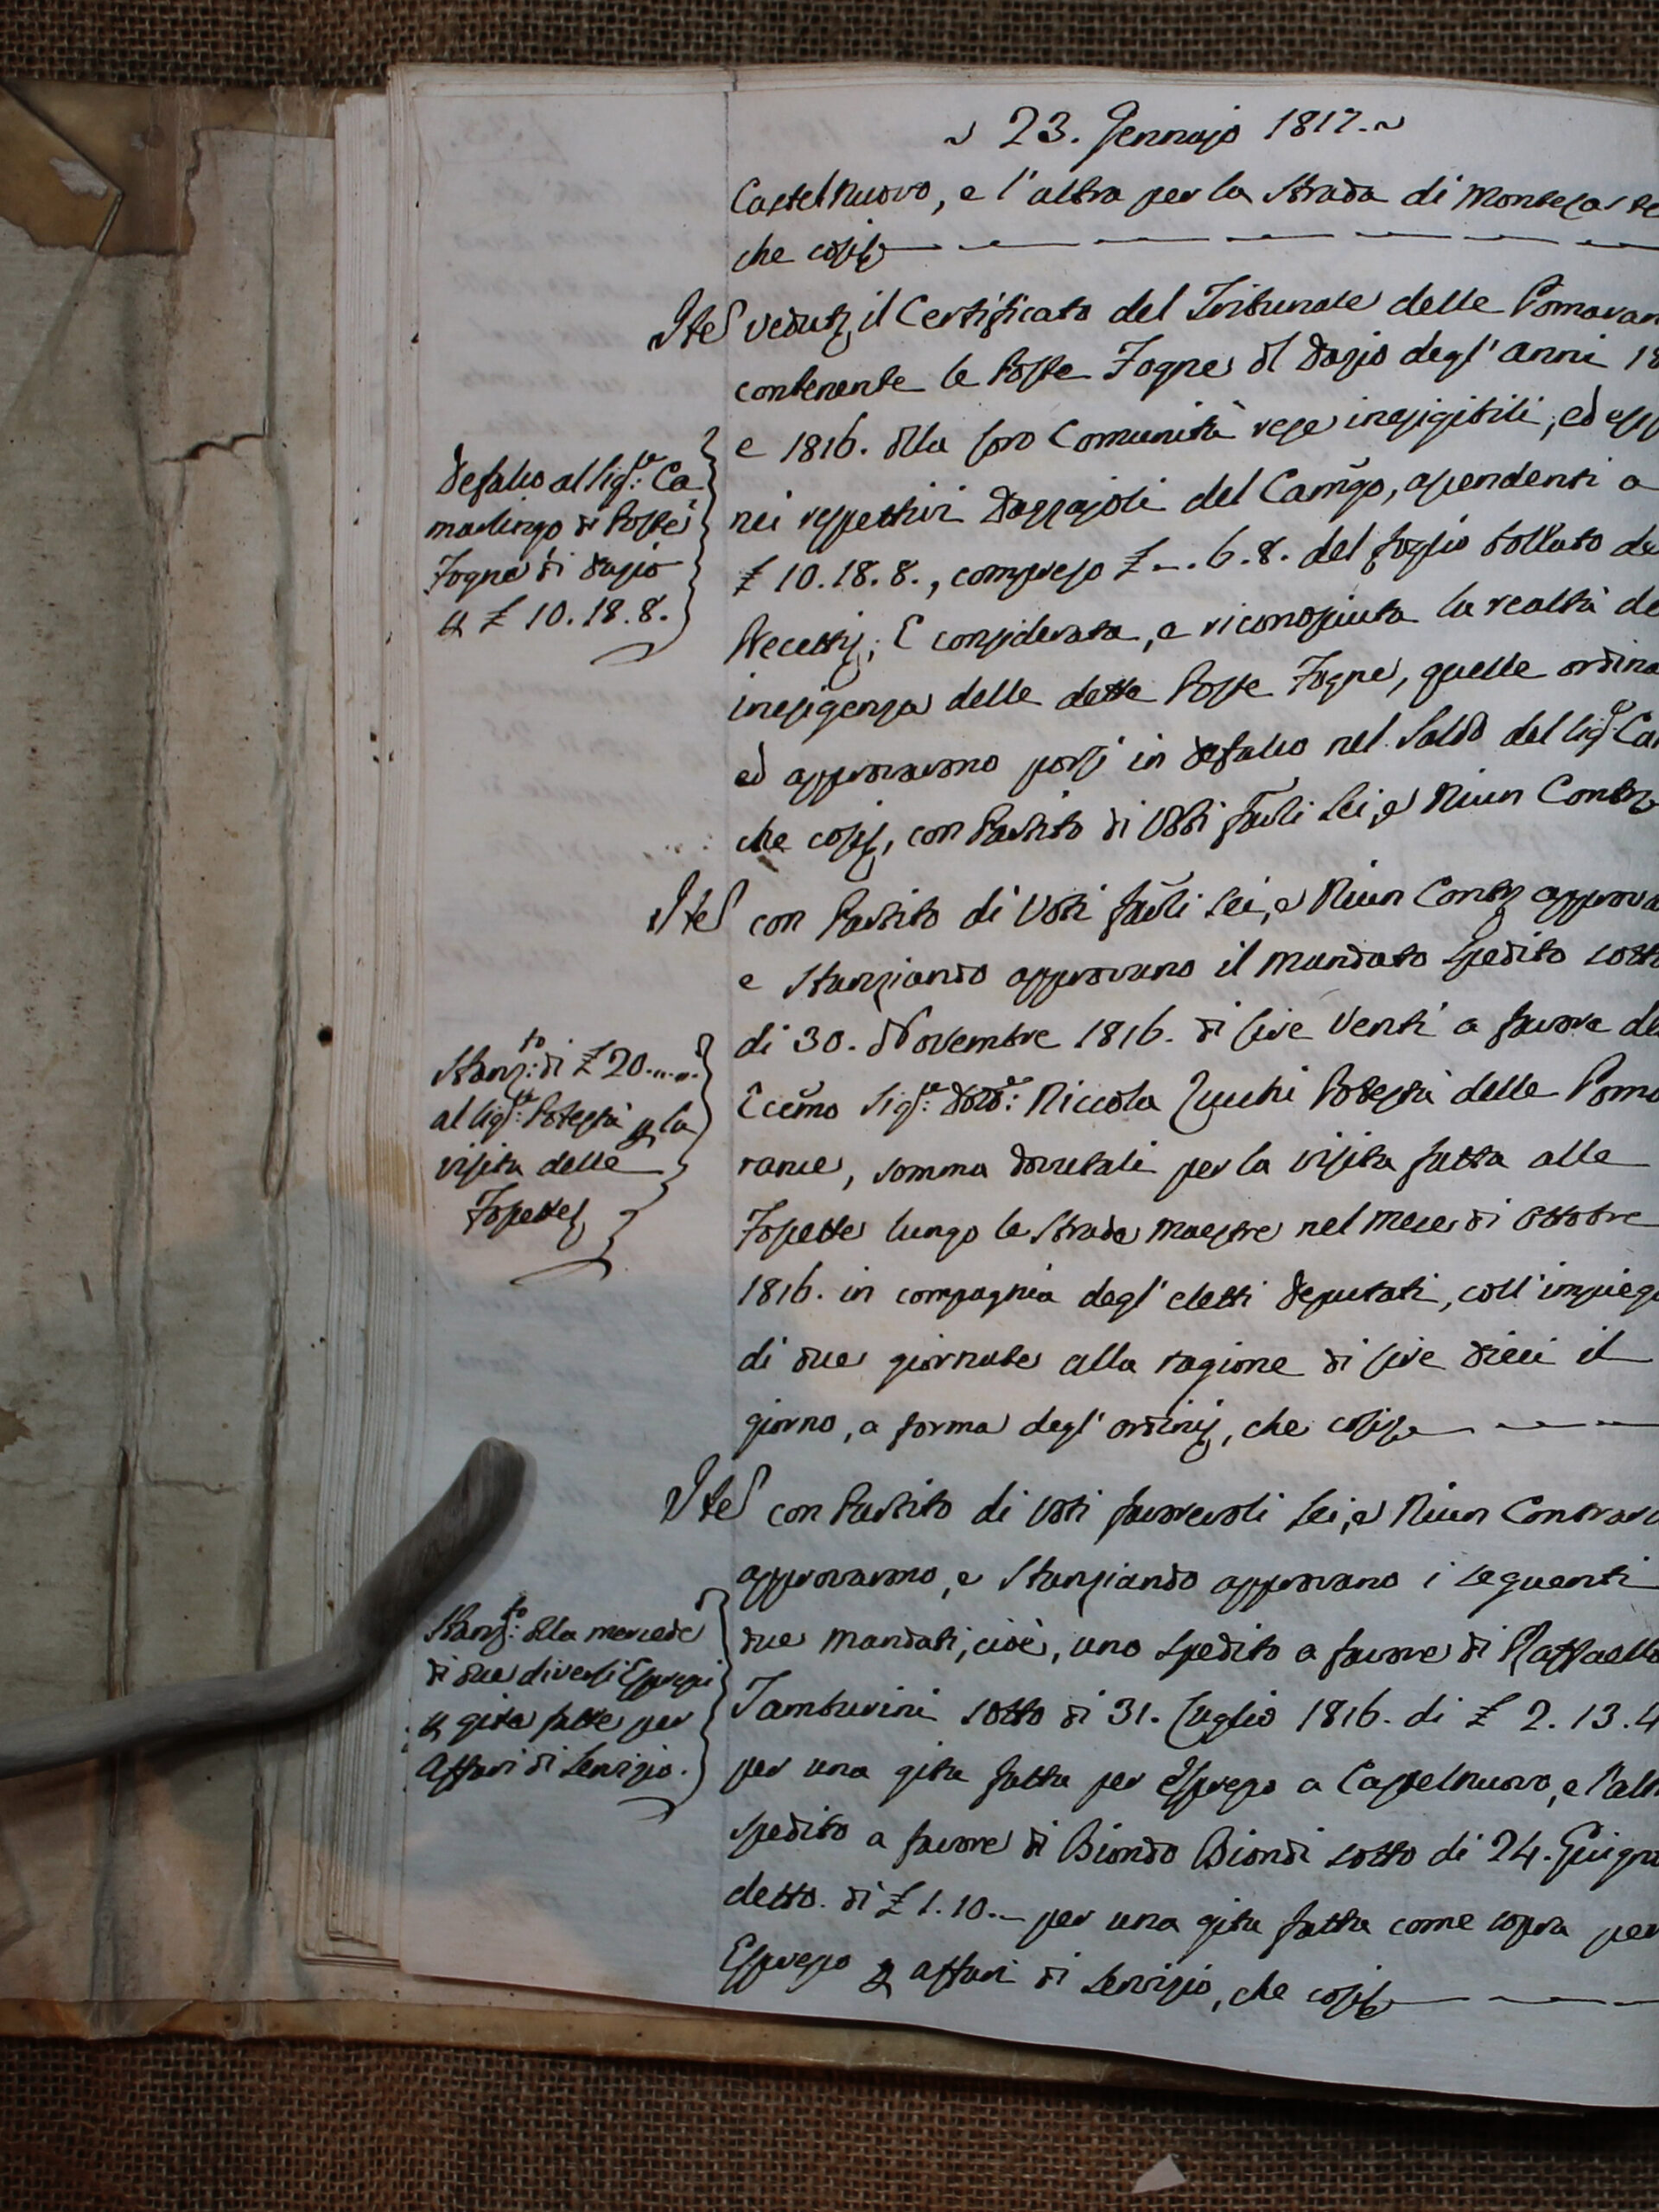 ~ 23. Gennajo 1817. ~
CastelNuovo, e l'altra per la Strada di Monteсaste
che cosi
Ite veduto il Certificato del Tribunale delle Pomaran
contenente le Poste Fogne di Dazio degl'anni 18
e 1816. della loro Comunità rese inesigibili, ed
nei respettivi Dazzajoli del Camgo, ascendenti a
£ 10.18.8., compreso £ -. 6.8. del foglio bollato de
Recetti; E considerata, e riconosciuta la realtà de
inesigenza delle dette Poste Fogne, quelle ordina
ed approvarono porsi in defalco nel Saldo del Sigr. Ca
che cosi, con Partito di Voti favli Sei, e Niun Contr
Ite con Partito di Voti favli Sei, e Niun Contr approva
e Stanziando approvano il mandato Spedito sotto
di 30. Novembre 1816. di Lire Venti a favore de
Eccmo Sigr: Dotr: Niccola Zucchi Potestà delle Poma
rance, somma dovutali per la visita fatta alle
Fossette lungo le Strade Maestre nel Mese di Ottobre
1816. in compagnia degl'eletti Deputati, coll'impiego
di due giornate alla ragione di Lire dieci il
giorno, a forma degl'ordini, che cosi
Ite con Partito di Voti favorevoli Sei, e Niun Contrario
approvarono, e Stanziando approvano i seguenti
due Mandati, cioè, uno Spedito a favore di Raffaello
Tamburini sotto di 31. Luglio 1816. di £ 2.13.4
per una gita fatta per Espresso a Castelnuovo, e l'alt
spedito a favore di Biondo Biondi sotto di 24. Giugno
detto. di £ 1.10.- per una gita fatta come sopra per
Espresso p affari di Servizio, che cosi
Defalco al Sigr: Ca
marlingo di Poste
Fogne di dazio
p £ 10.18.8.
Stanzto: di £ 20.-.-.
al Sigr: Potestà p la
visita delle
Fossette
Stanzto: della mercede
di due diversi Espressi
p gite fatte per
Affari di Servizio.